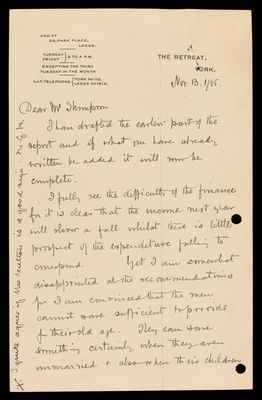 AND AT
22, PARK PLACE,
LEEDS.
TUESDAY
FRIDAY } 2 TO 4 P.M.
EXCEPTING THE THIRD
TUESDAY IN THE MONTH
NAT. TELEPHONE { YORK No 112.
LEEDS No 181A.
THE RETREAT,
YORK.
Nov. 13. 1905.
Dear Mr Thompson
I have drafted the earlier part of the
report and if what you have already
written be added it will now be
complete.
I fully see the difficulty of the finance
for it is clear that the income next year
will show a fall whilst there is little
prospect of the expenditure falling to
correspond. Yet I am somewhat
disappointed at the recommendations
for I am convinced that the men
cannot save sufficient to provide
for their old age. They can save
something certainly when they are
unmarried & also when their children
I quite agree if this is a good